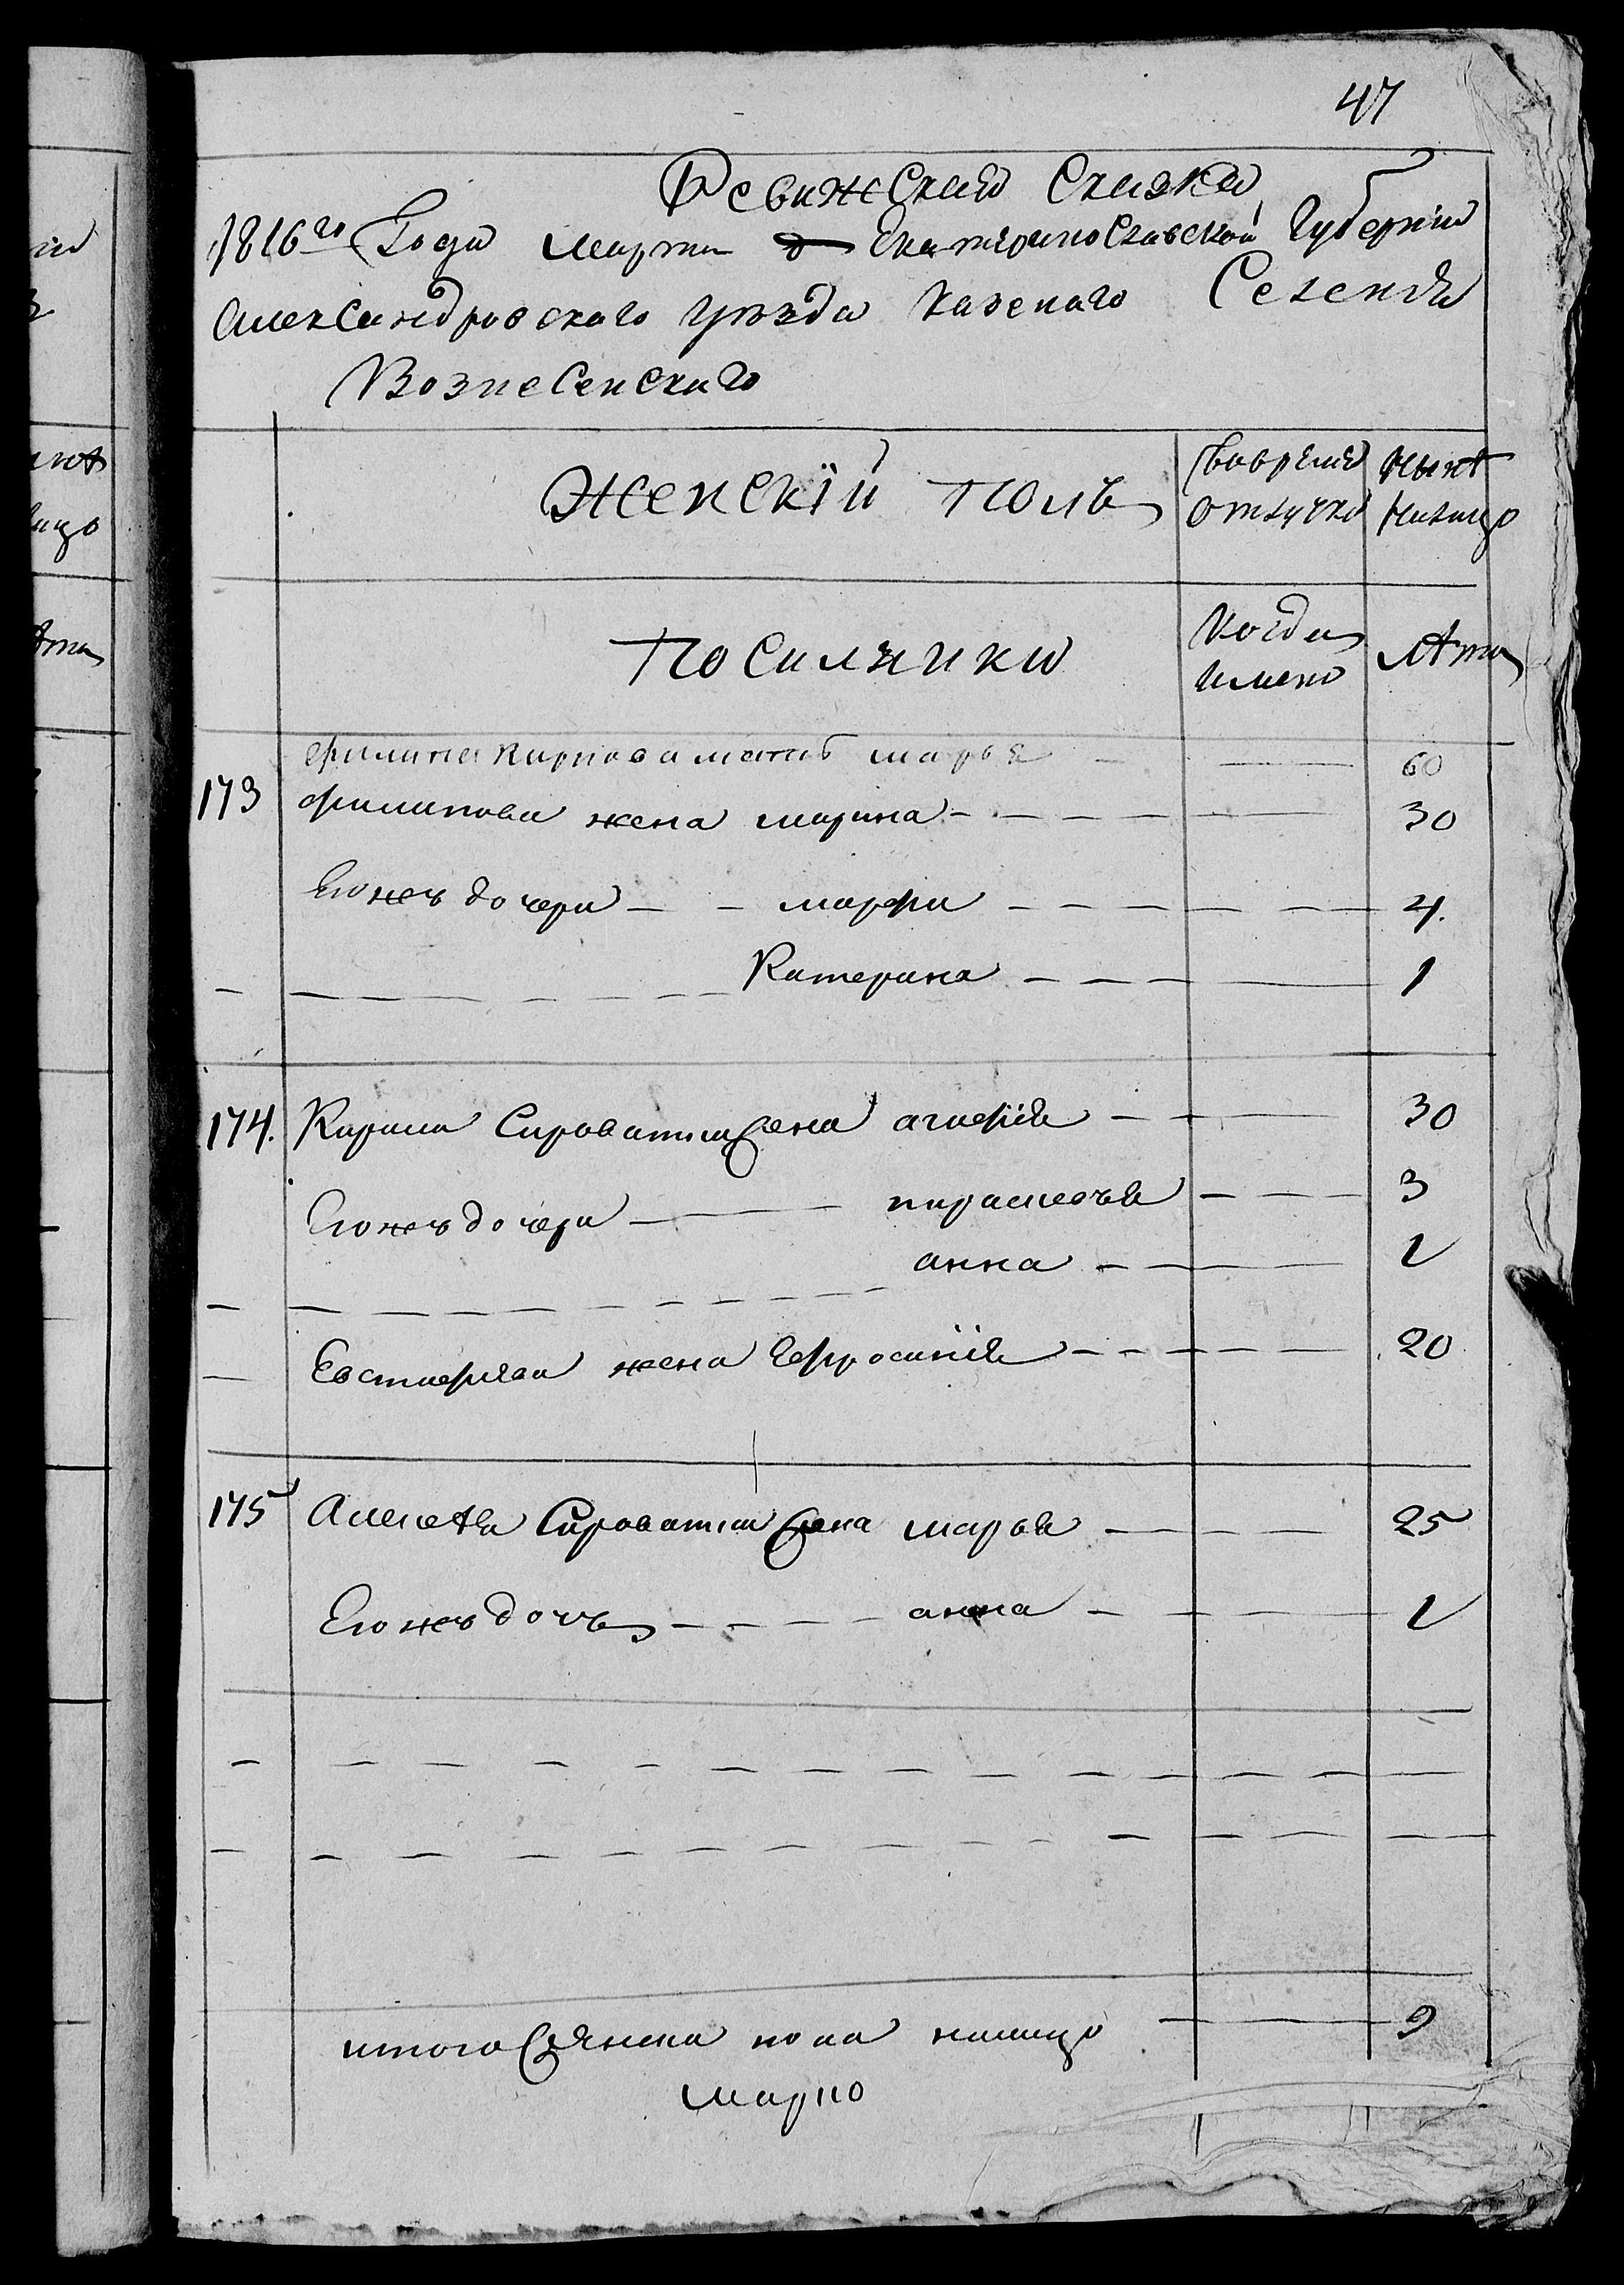 47
Ревижская Сказка
1816го Года марта Екатеринославской Губернии
Александровского уезда казенаго Селения
Вознесенскаго
Женскій полъ
Вовремя
отлучки
Нынѣ
на лицо
Посиляники
Когда
имено
Лѣта
Филипа Карпова мать марья 60
173 Филипова жена марина 30
Егожъ дочери марфа 4.
Катерина 1
174. Сироватки жена агафія 30
Егожъ дочери парасковья 3
анна 1
Евстафіева жена Ефросинія 20
175 Алексѣя Сироватки жена марья 25
Егожъ дочь анна 1
итого женска пола налицо 9